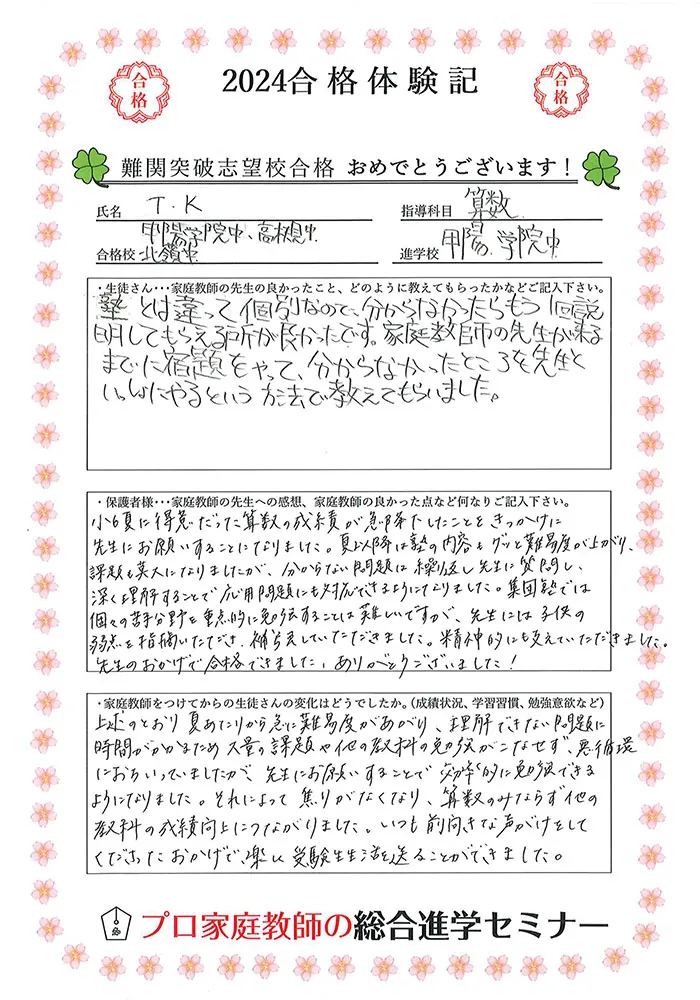 合格
2024合格体験記
合格
難関突破志望校合格 おめでとうございます!
氏名 T.K
指導科目 算数
合格校 甲陽学院中、高槻中
北嶺中
進学校 甲陽学院中
・生徒さん・・・家庭教師の先生の良かったこと、どのように教えてもらったかなどご記入下さい。
塾とは違って個別なので、分からなかったらもう1回説
明してもらえる所が良かったです。家庭教師の先生が来る
までに宿題をやって、分からなかったところを先生と
いっしょにやるという方法で教えてもらいました。
・保護者様・・・家庭教師の先生への感想、家庭教師の良かった点など何なりご記入下さい。
小6夏に得意だった算数の成績が急降下したことをきっかけに
先生にお願いすることになりました。夏以降は塾の内容もグッと難易度が上がり、
課題も莫大になりましたが、分からない問題は繰り返し先生に質問し、
深く理解することで応用問題にも対応できるようになりました。集団塾では
個々の苦手分野を重点的に勉強することは難しいですが、先生には子供の
弱点を指摘いただき、補強していただきました。精神的にも支えていただきました。
先生のおかげで合格できました。ありがとうございました!
・家庭教師をつけてからの生徒さんの変化はどうでしたか。(成績状況、学習習慣、勉強意欲など)
上述のとおり夏あたりから急に難易度があがり、理解できない問題に
時間がかかるため大量の課題や他の教科の勉強がこなせず悪循環
におちいっていましたが、先生にお願いすることで効率的に勉強できる
ようになりました。それによって焦りがなくなり、算数のみならず他の
教科の成績向上につながりました。いつも前向きな声がけをして
くださったおかげで、楽しい受験生生活を送ることができました。
プロ家庭教師の総合進学セミナー